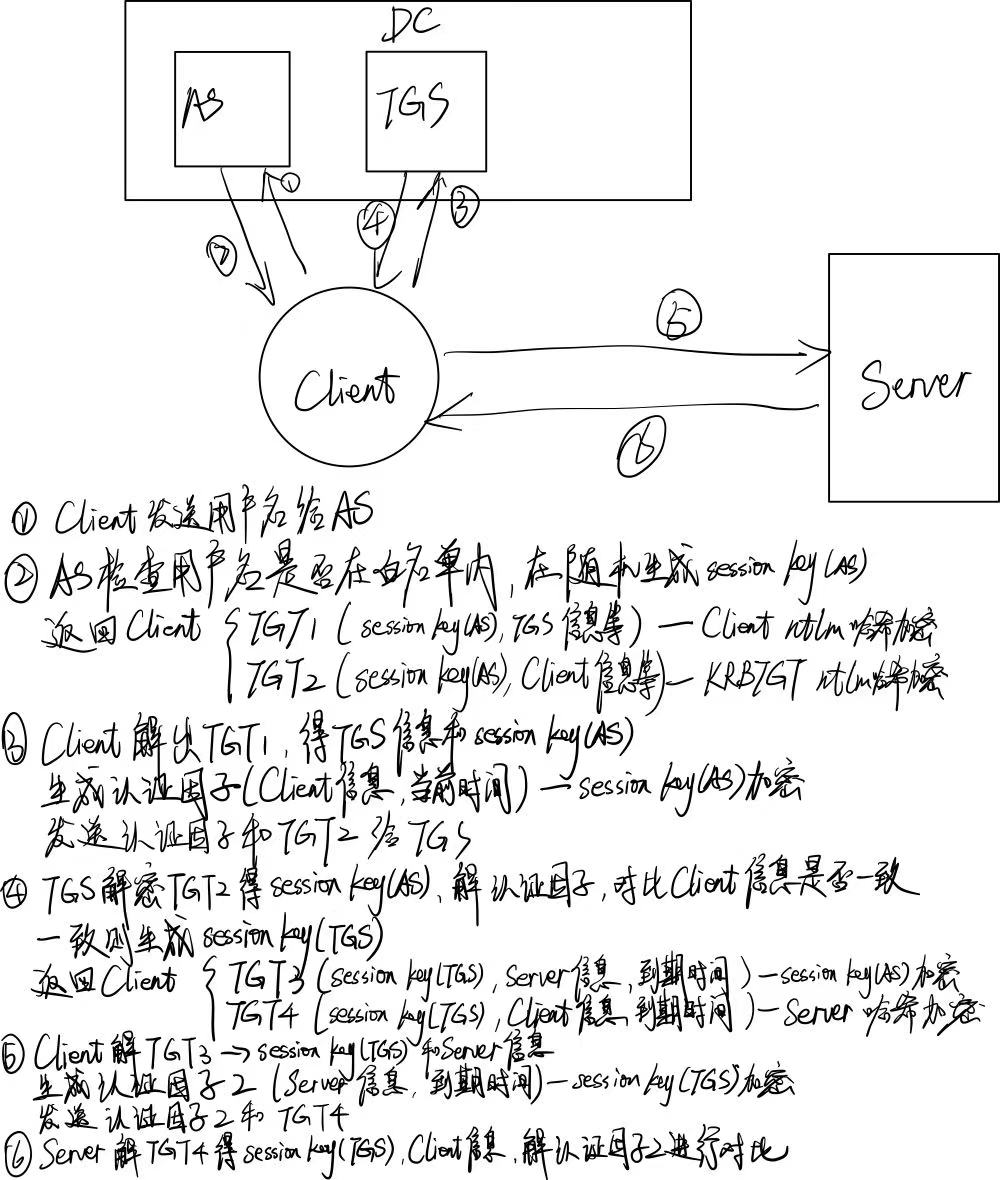 DC
AS
TGS
①
②
④
③
⑤
Client
Server
⑥
① Client 发送用户名给AS
② AS检查用户名是否在白名单内,在随机生成session key(AS)
返回Client { TGT1 ( session key(AS), TGS信息等 ) — Client ntlm哈希加密
TGT2 (session key(AS), Client信息等) — KRBTGT ntlm哈希加密
③ Client 解出TGT1, 得TGS信息和session key(AS)
生成认证因子(Client信息,当前时间) — session key(AS)加密
发送认证因子和TGT2给TGS
④ TGS解密TGT2得session key(AS), 解认证因子,对比Client信息是否一致
一致则生成session key(TGS)
返回Client { TGT3 (session key(TGS), Server信息,到期时间) — session key(AS)加密
TGT4 (session key(TGS), Client信息,到期时间) — Server哈希加密
⑤ Client解TGT3 → session key(TGS)和Server信息
生成认证因子2 (Server信息,到期时间) — session key(TGS)加密
发送认证因子2和TGT4
⑥ Server解TGT4得session key(TGS), Client信息,解认证因子2进行对比